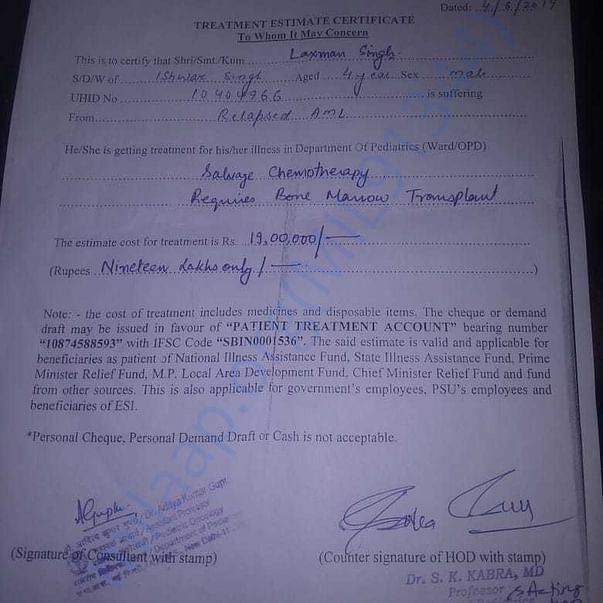 Dated: 4/6/2019
TREATMENT ESTIMATE CERTIFICATE
To Whom It May Concern
This is to certify that Shri/Smt/Kum Laxman Singh
S/D/W of Ishwar Singh Aged 4 year Sex male
UHID No 10404966 is suffering
From Relapsed AML
He/She is getting treatment for his/her illness in Department Of Pediatrics (Ward/OPD)
Salvage Chemotherapy
Requires Bone Marrow Transplant
The estimate cost for treatment is Rs. 19,00,000/-
(Rupees Nineteen Lakhs only/- )
Note: - the cost of treatment includes medicines and disposable items. The cheque or demand
draft may be issued in favour of “PATIENT TREATMENT ACCOUNT” bearing number
“10874588593” with IFSC Code “SBIN0001536”. The said estimate is valid and applicable for
beneficiaries as patient of National Illness Assistance Fund, State Illness Assistance Fund, Prime
Minister Relief Fund, M.P. Local Area Development Fund, Chief Minister Relief Fund and fund
from other sources. This is also applicable for government's employees, PSU's employees and
beneficiaries of ESI.
*Personal Cheque, Personal Demand Draft or Cash is not acceptable.
AGupta
Dr. Aditya Kumar Gupt
(Signature of Consultant with stamp)
(Counter signature of HOD with stamp)
Dr. S. K. KABRA, MD
Professor